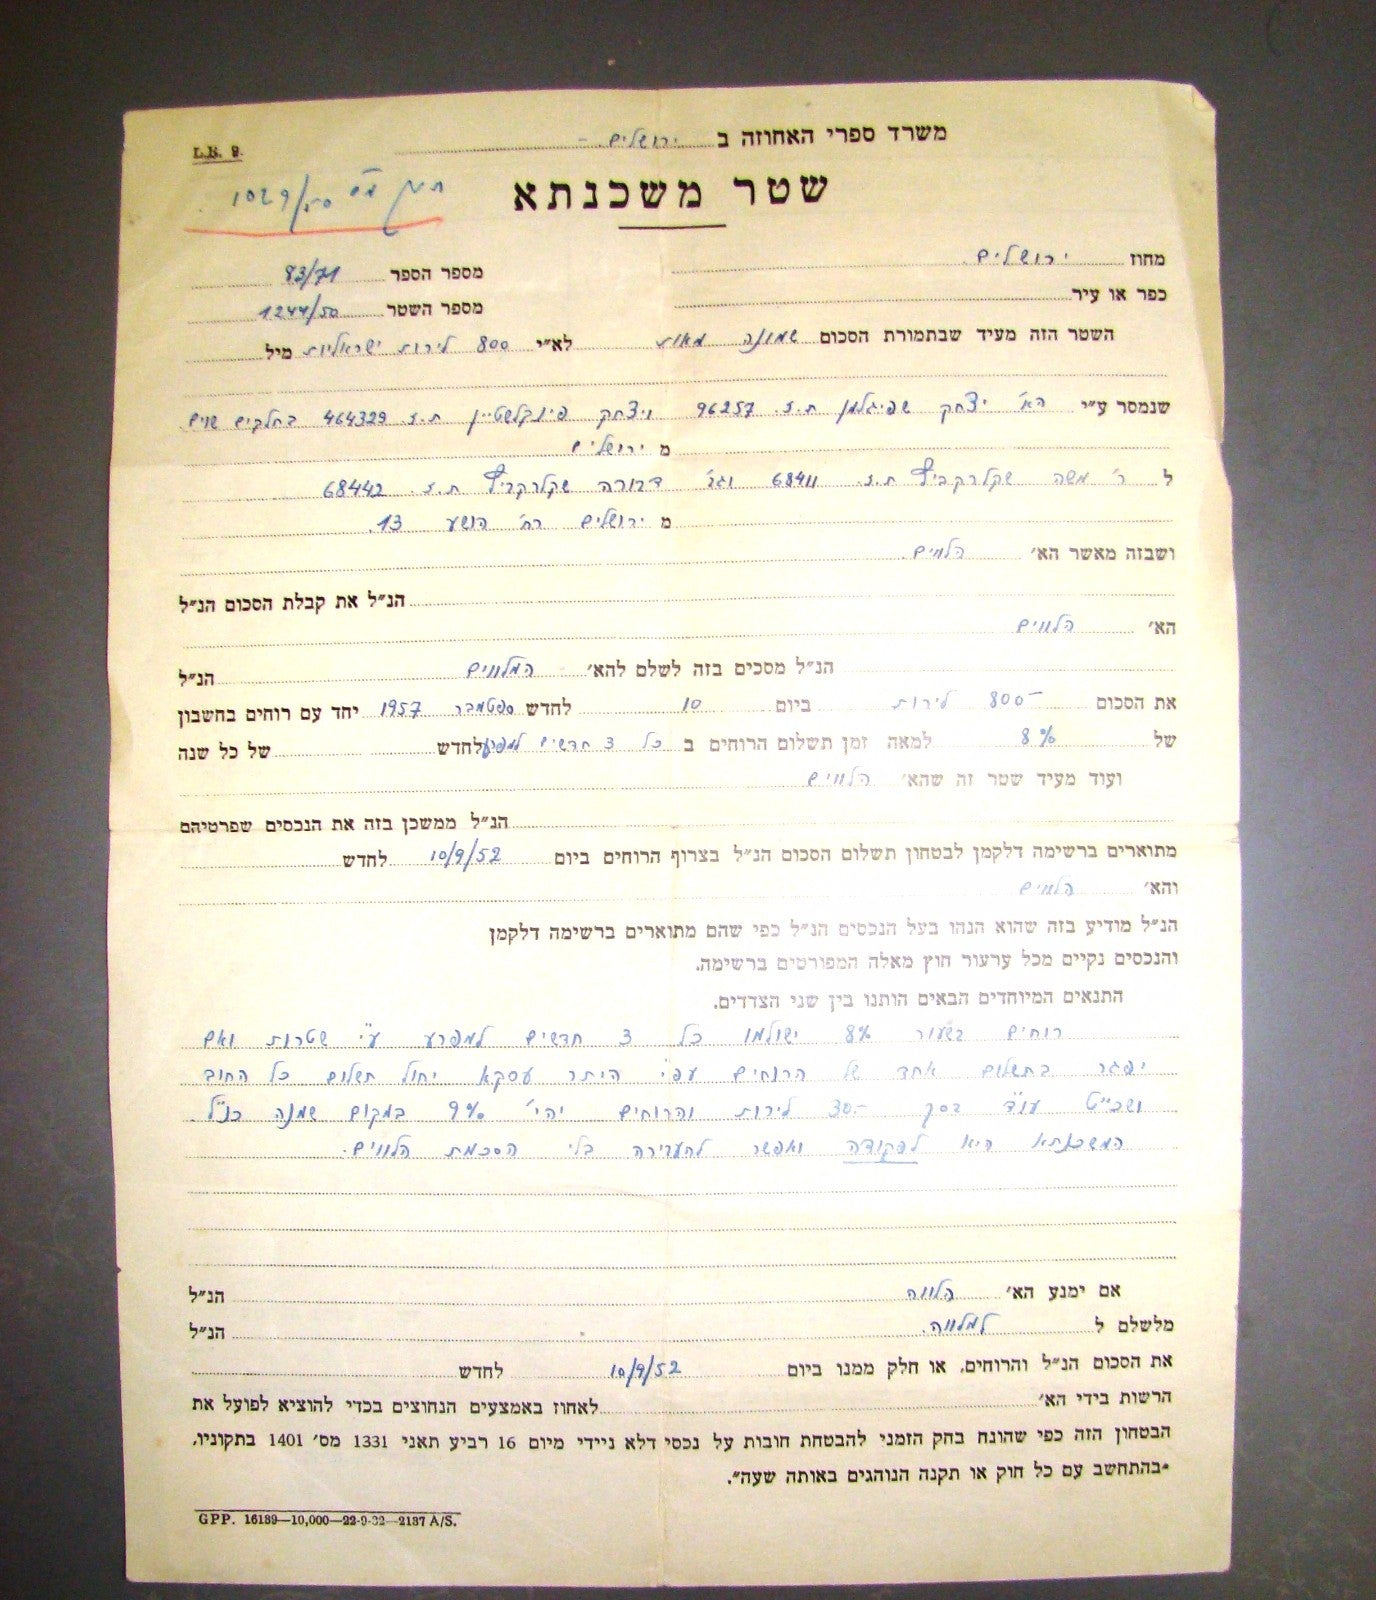 משרד ספרי האחוזה ב ירושלים.-
L.R. 9.
תיק מס 1029/50
שטר משכנתא
מחוז ירושלים.
מספר הספר 83/71
כפר או עיר
מספר השטר 1244/50
השטר הזה מעיד שבתמורת הסכום שמונה מאות לא״י 800 לירות ישראליות מיל
שנמסר ע״י הא' יצחק שפיגלמן ת.ז. 96257 ויצחק פינקלשטיין ת.ז. 464329 בחלקים שוים
מ ירושלים
ל ר' משה ת.ז. 68411 וגב' דבורה ת.ז. 68442
מ ירושלים רח' הושע 13.
ושבזה מאשר הא' הלווים.
הנ״ל את קבלת הסכום הנ״ל
הא' הלווים
הנ״ל מסכים בזה לשלם להא' המלווים הנ״ל
את הסכום 800.- לירות ביום 10 לחדש ספטמבר 1957 יחד עם רוחים בחשבון
של 8% למאה זמן תשלום הרוחים ב כל 3 חדשים למפרע לחדש של כל שנה
ועוד מעיד שטר זה שהא' הלווים
הנ״ל ממשכן בזה את הנכסים שפרטיהם
מתוארים ברשימה דלקמן לבטחון תשלום הסכום הנ״ל בצרוף הרוחים ביום 10/9/52 לחדש
והא' הלווים
הנ״ל מודיע בזה שהוא הנהו בעל הנכסים הנ״ל כפי שהם מתוארים ברשימה דלקמן
והנכסים נקיים מכל ערעור חוץ מאלה המפורטים ברשימה.
התנאים המיוחדים הבאים הותנו בין שני הצדדים.
רוחים בשעור 8% ישולמו כל 3 חדשים למפרע ע״י שטרות ואם
יפגר בתשלום אחד של הרוחים עפ״י היתר עסקא יחול תשלום כל החוב
ושכ״ט עו״ד בסך 30.- לירות והרוחים יהי' 9% במקום שמנה כנ״ל.
המשכנתא היא לפקודה ואפשר להעבירה בלי הסכמת הלווים.
אם ימנע הא' הלווה הנ״ל
מלשלם ל למלווה. הנ״ל
את הסכום הנ״ל והרוחים, או חלק ממנו ביום 10/9/52 לחדש
הרשות בידי הא' לאחוז באמצעים הנחוצים בכדי להוציא לפועל את
הבטחון הזה כפי שהונח בחק הזמני להבטחת חובות על נכסי דלא ניידי מיום 16 רביע תאני 1331 מס' 1401 בתקוניו,
״בהתחשב עם כל חוק או תקנה הנוהגים באותה שעה״.
GPP. 16189—10,000—22-9-32—2137 A/S.